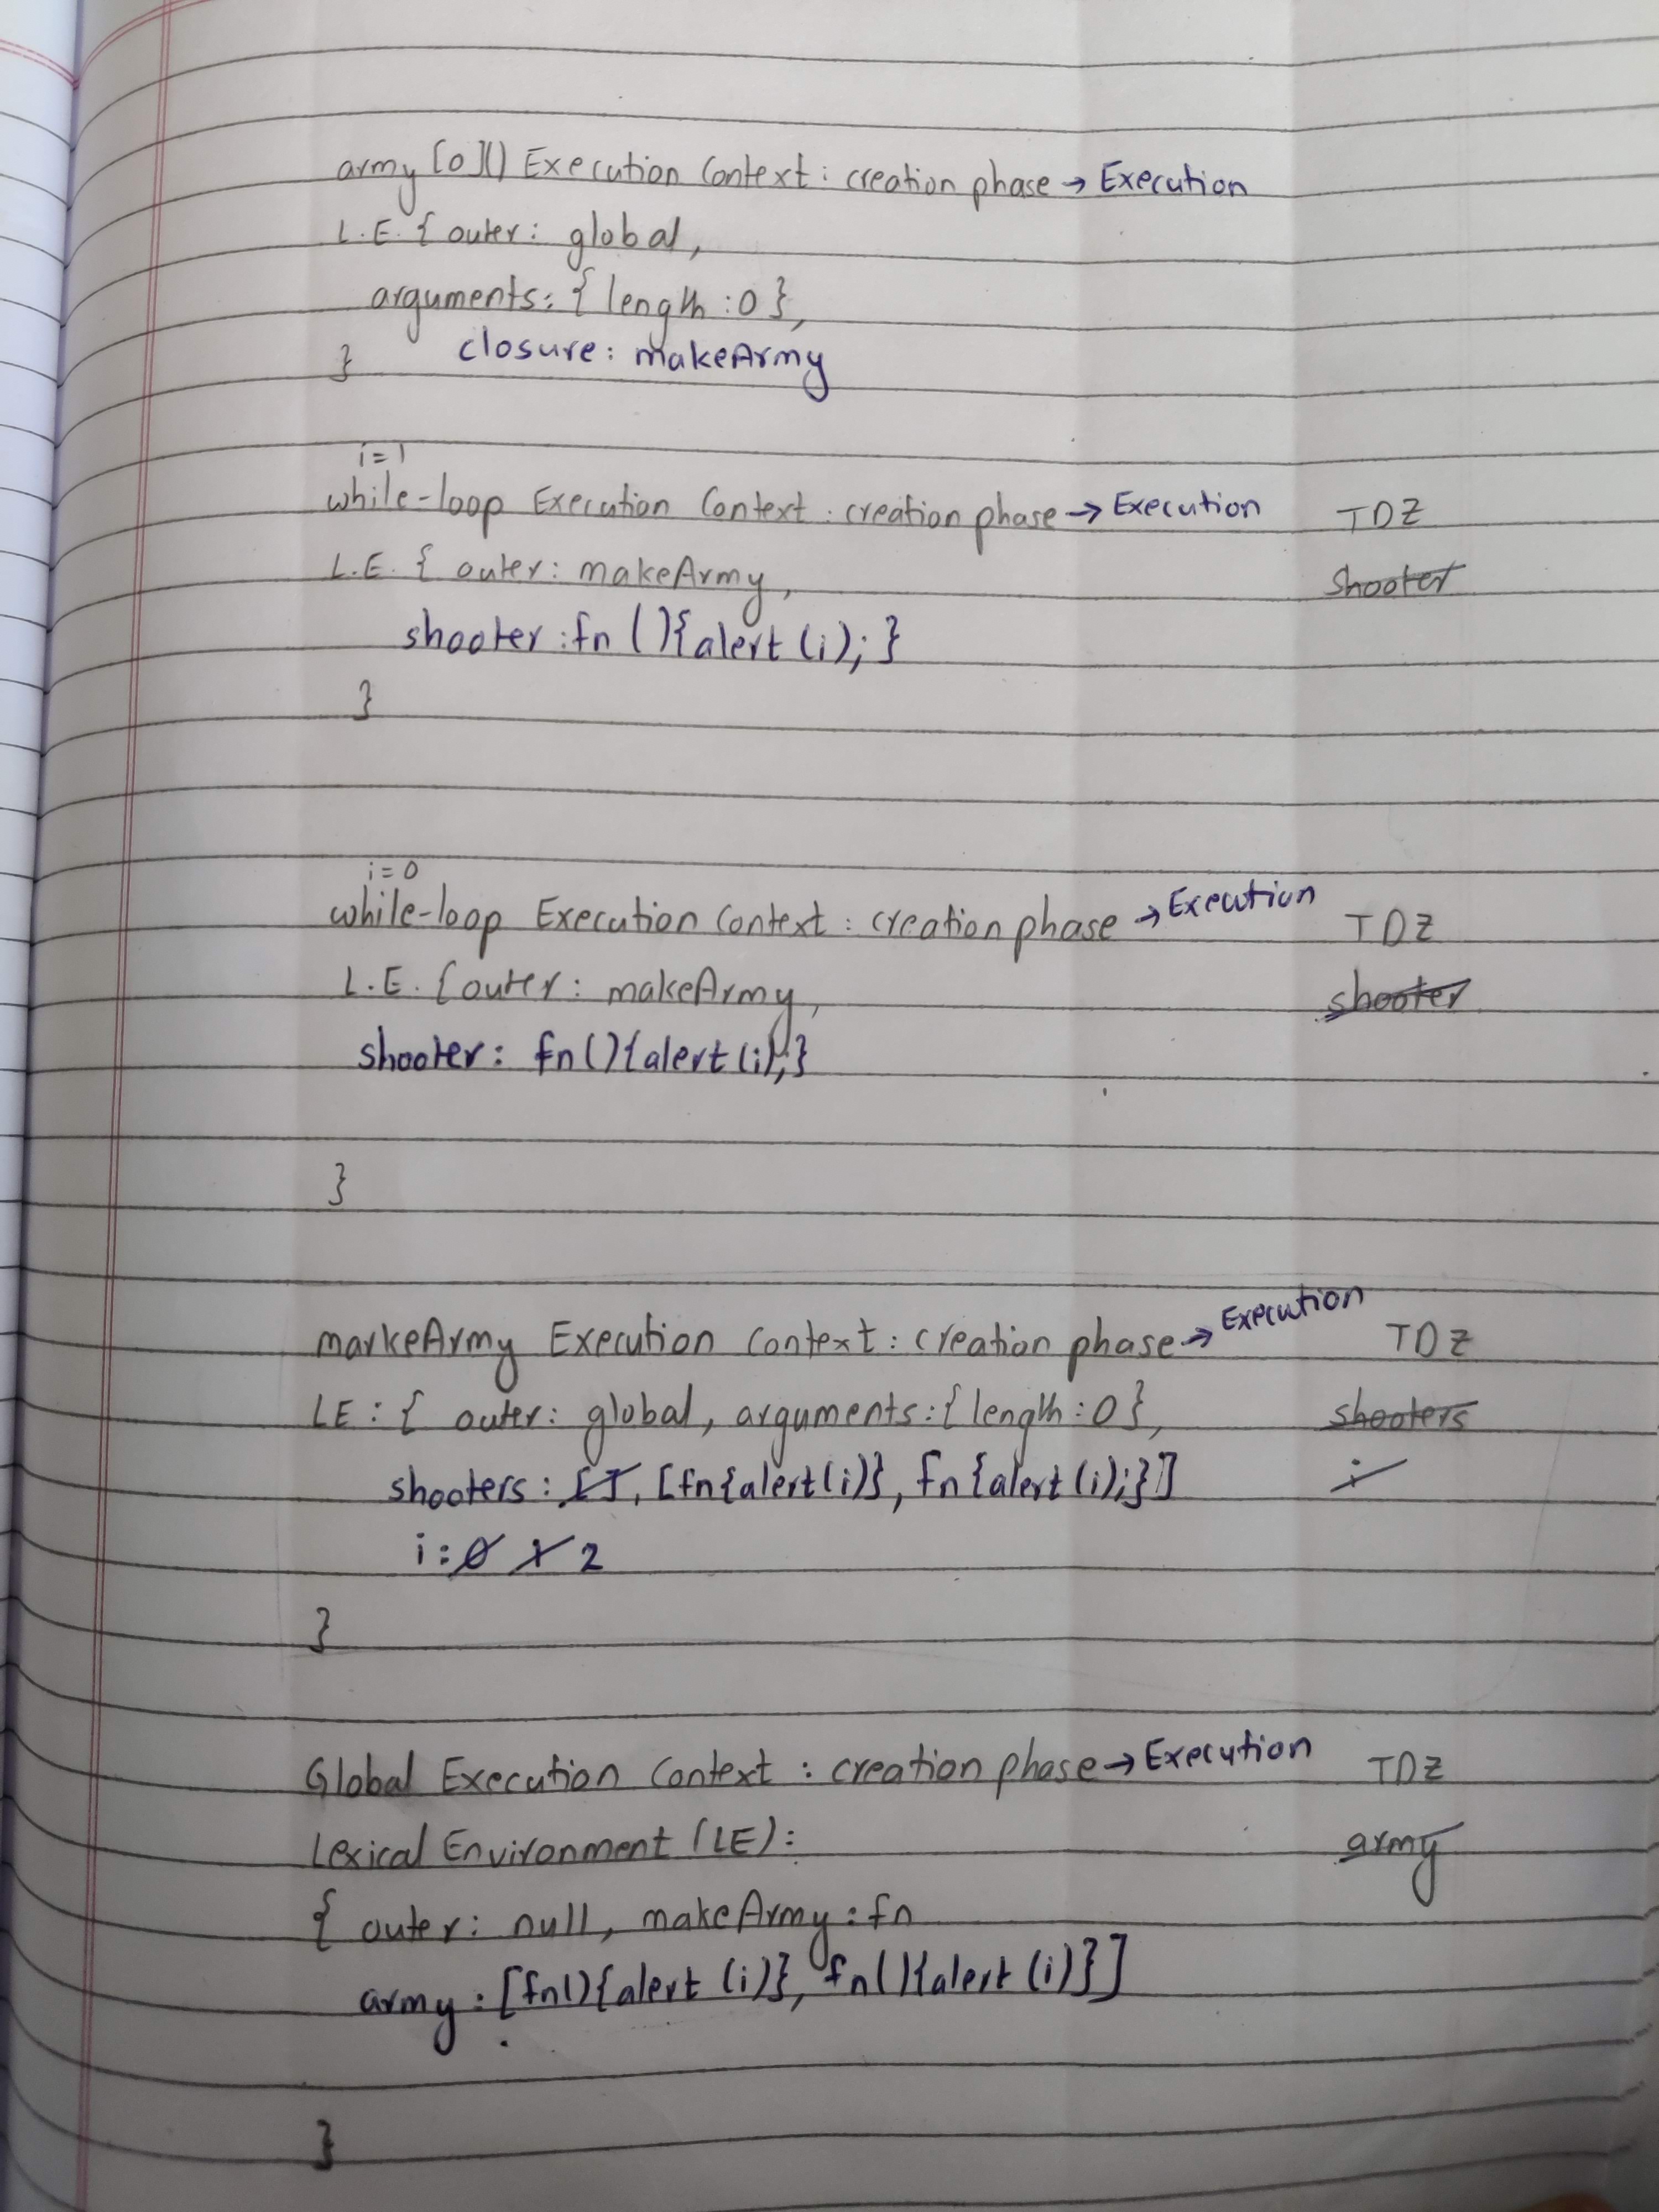 army [0]() Execution Context : creation phase → Execution
L.E. { outer : global,
arguments : { length : 0 },
} closure : makeArmy
i = 1
while-loop Execution Context : creation phase → Execution TDZ
L.E. { outer : makeArmy, shooter
shooter : fn (){alert (i); }
}
i = 0
while-loop Execution Context : creation phase → Execution TDZ
L.E. { outer : makeArmy, shooter
shooter : fn(){alert (i);}
}
markeArmy Execution Context : creation phase → Execution TDZ
LE : { outer : global, arguments : { length : 0 }, shooters
shooters : [], [fn{alert(i)}, fn{alert (i);}] i
i : 0 1 2
}
Global Execution Context : creation phase → Execution TDZ
Lexical Environment (LE) : army
{ outer : null, makeArmy : fn
army : [fn(){alert (i)}, fn(){alert (i)}]
}